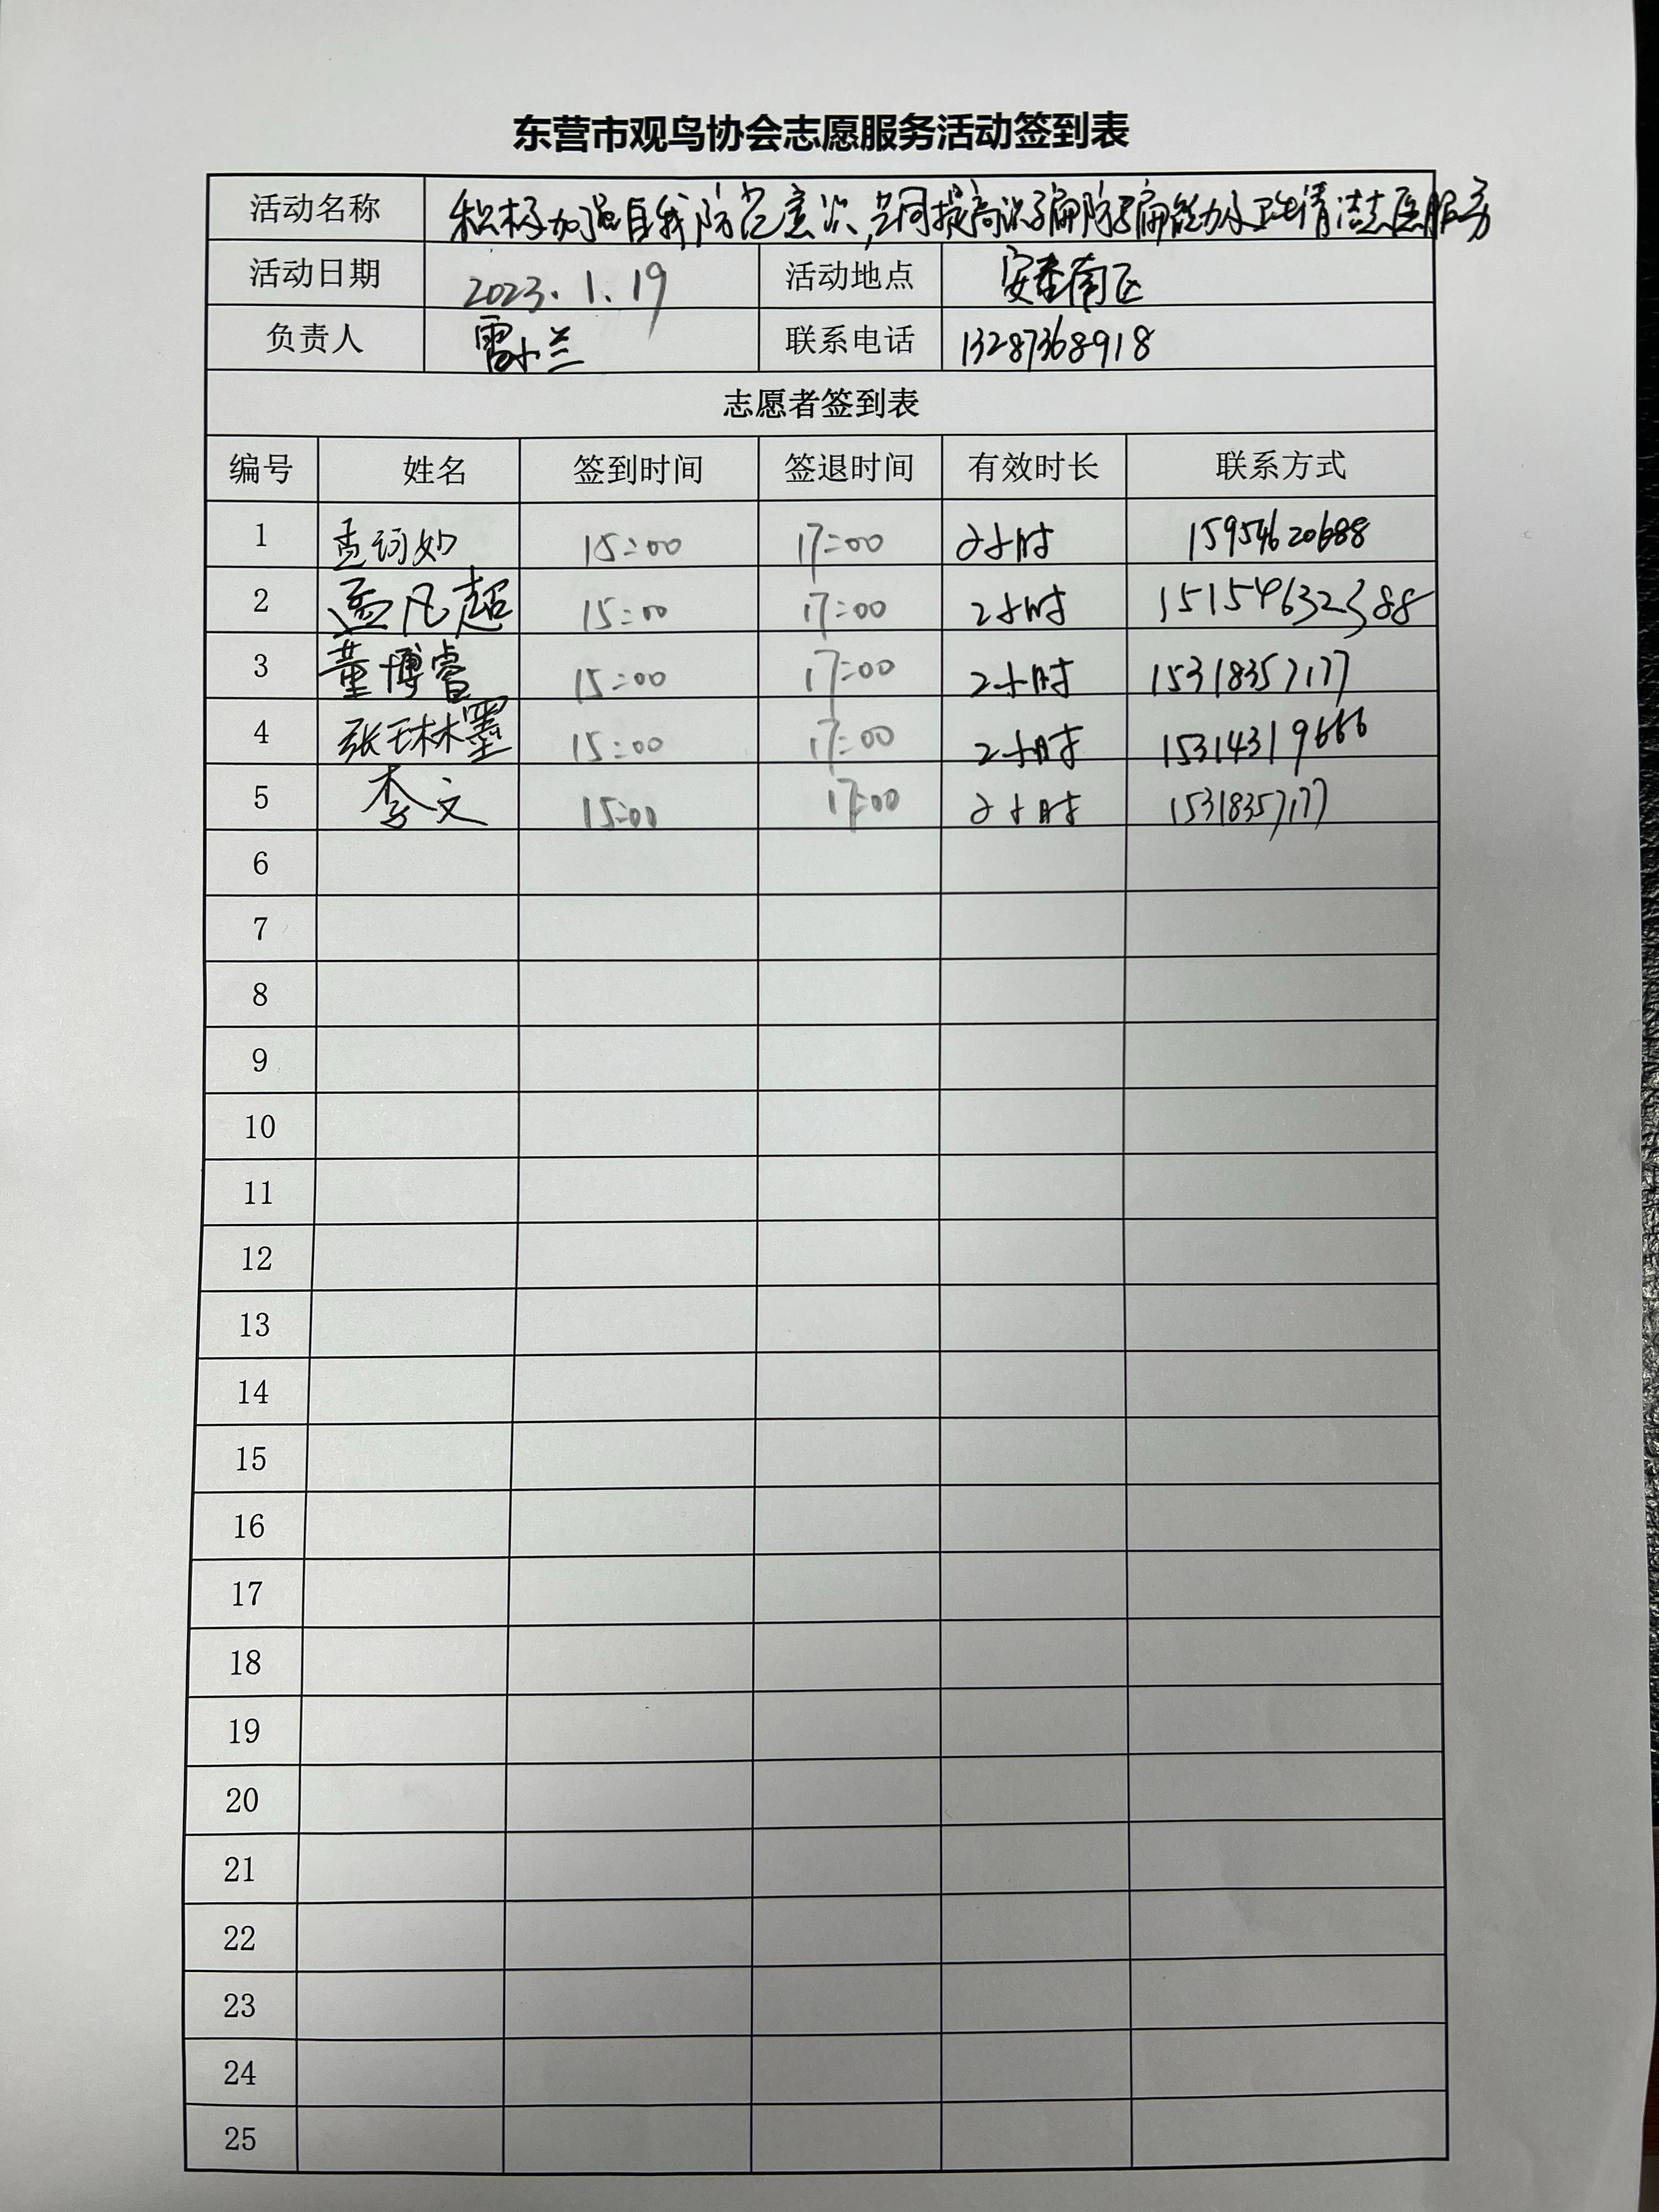 东营市观鸟协会志愿服务活动签到表
活动名称 积极加强自我防范意识,共同提高识骗防骗能力及卫生清洁志愿服务
活动日期 2023.1.19 活动地点 安泰南区
负责人 雷小兰 联系电话 13287368918
志愿者签到表
编号 姓名 签到时间 签退时间 有效时长 联系方式
1 孟诃如 15:00 17:00 2小时 15954620688
2 孟凡超 15:00 17:00 2小时 15154632388
3 董博睿 15:00 17:00 2小时 15318357177
4 张琳墨 15:00 17:00 2小时 15314319666
5 李文 15:00 17:00 2小时 15318357177
6
7
8
9
10
11
12
13
14
15
16
17
18
19
20
21
22
23
24
25